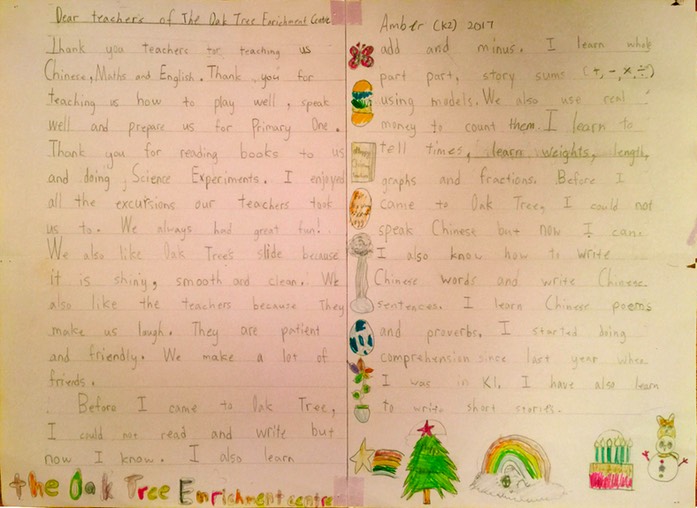 Dear teachers of The Oak Tree Enrichment Centre
Thank you teachers for teaching us
Chinese, Maths and English. Thank you for
teaching us how to play well, speak
well and prepare us for Primary One.
Thank you for reading books to us
and doing, Science Experiments. I enjoyed
all the excursions our teachers took
us to. We always had great fun!
We also like Oak Tree's slide because
it is shiny, smooth and clean. We
also like the teachers because They
make us laugh. They are patient
and friendly. We make a lot of
friends.
Before I came to Oak Tree,
I could not read and write but
now I know. I also learn
the Oak Tree Enrichment centre
Amber (K2) 2017
add and minus. I learn whole
part part, story sums (+, -, ×, ÷)
using models. We also use real
money to count them. I learn to
tell times, learn weights, length,
graphs and fractions. Before I
came to Oak Tree, I could not
speak Chinese but now I can.
I also know how to write
Chinese words and write Chinese
sentences. I learn Chinese poems
and proverbs. I started doing
comprehension since last year when
I was in K1. I have also learn
to write short stories.